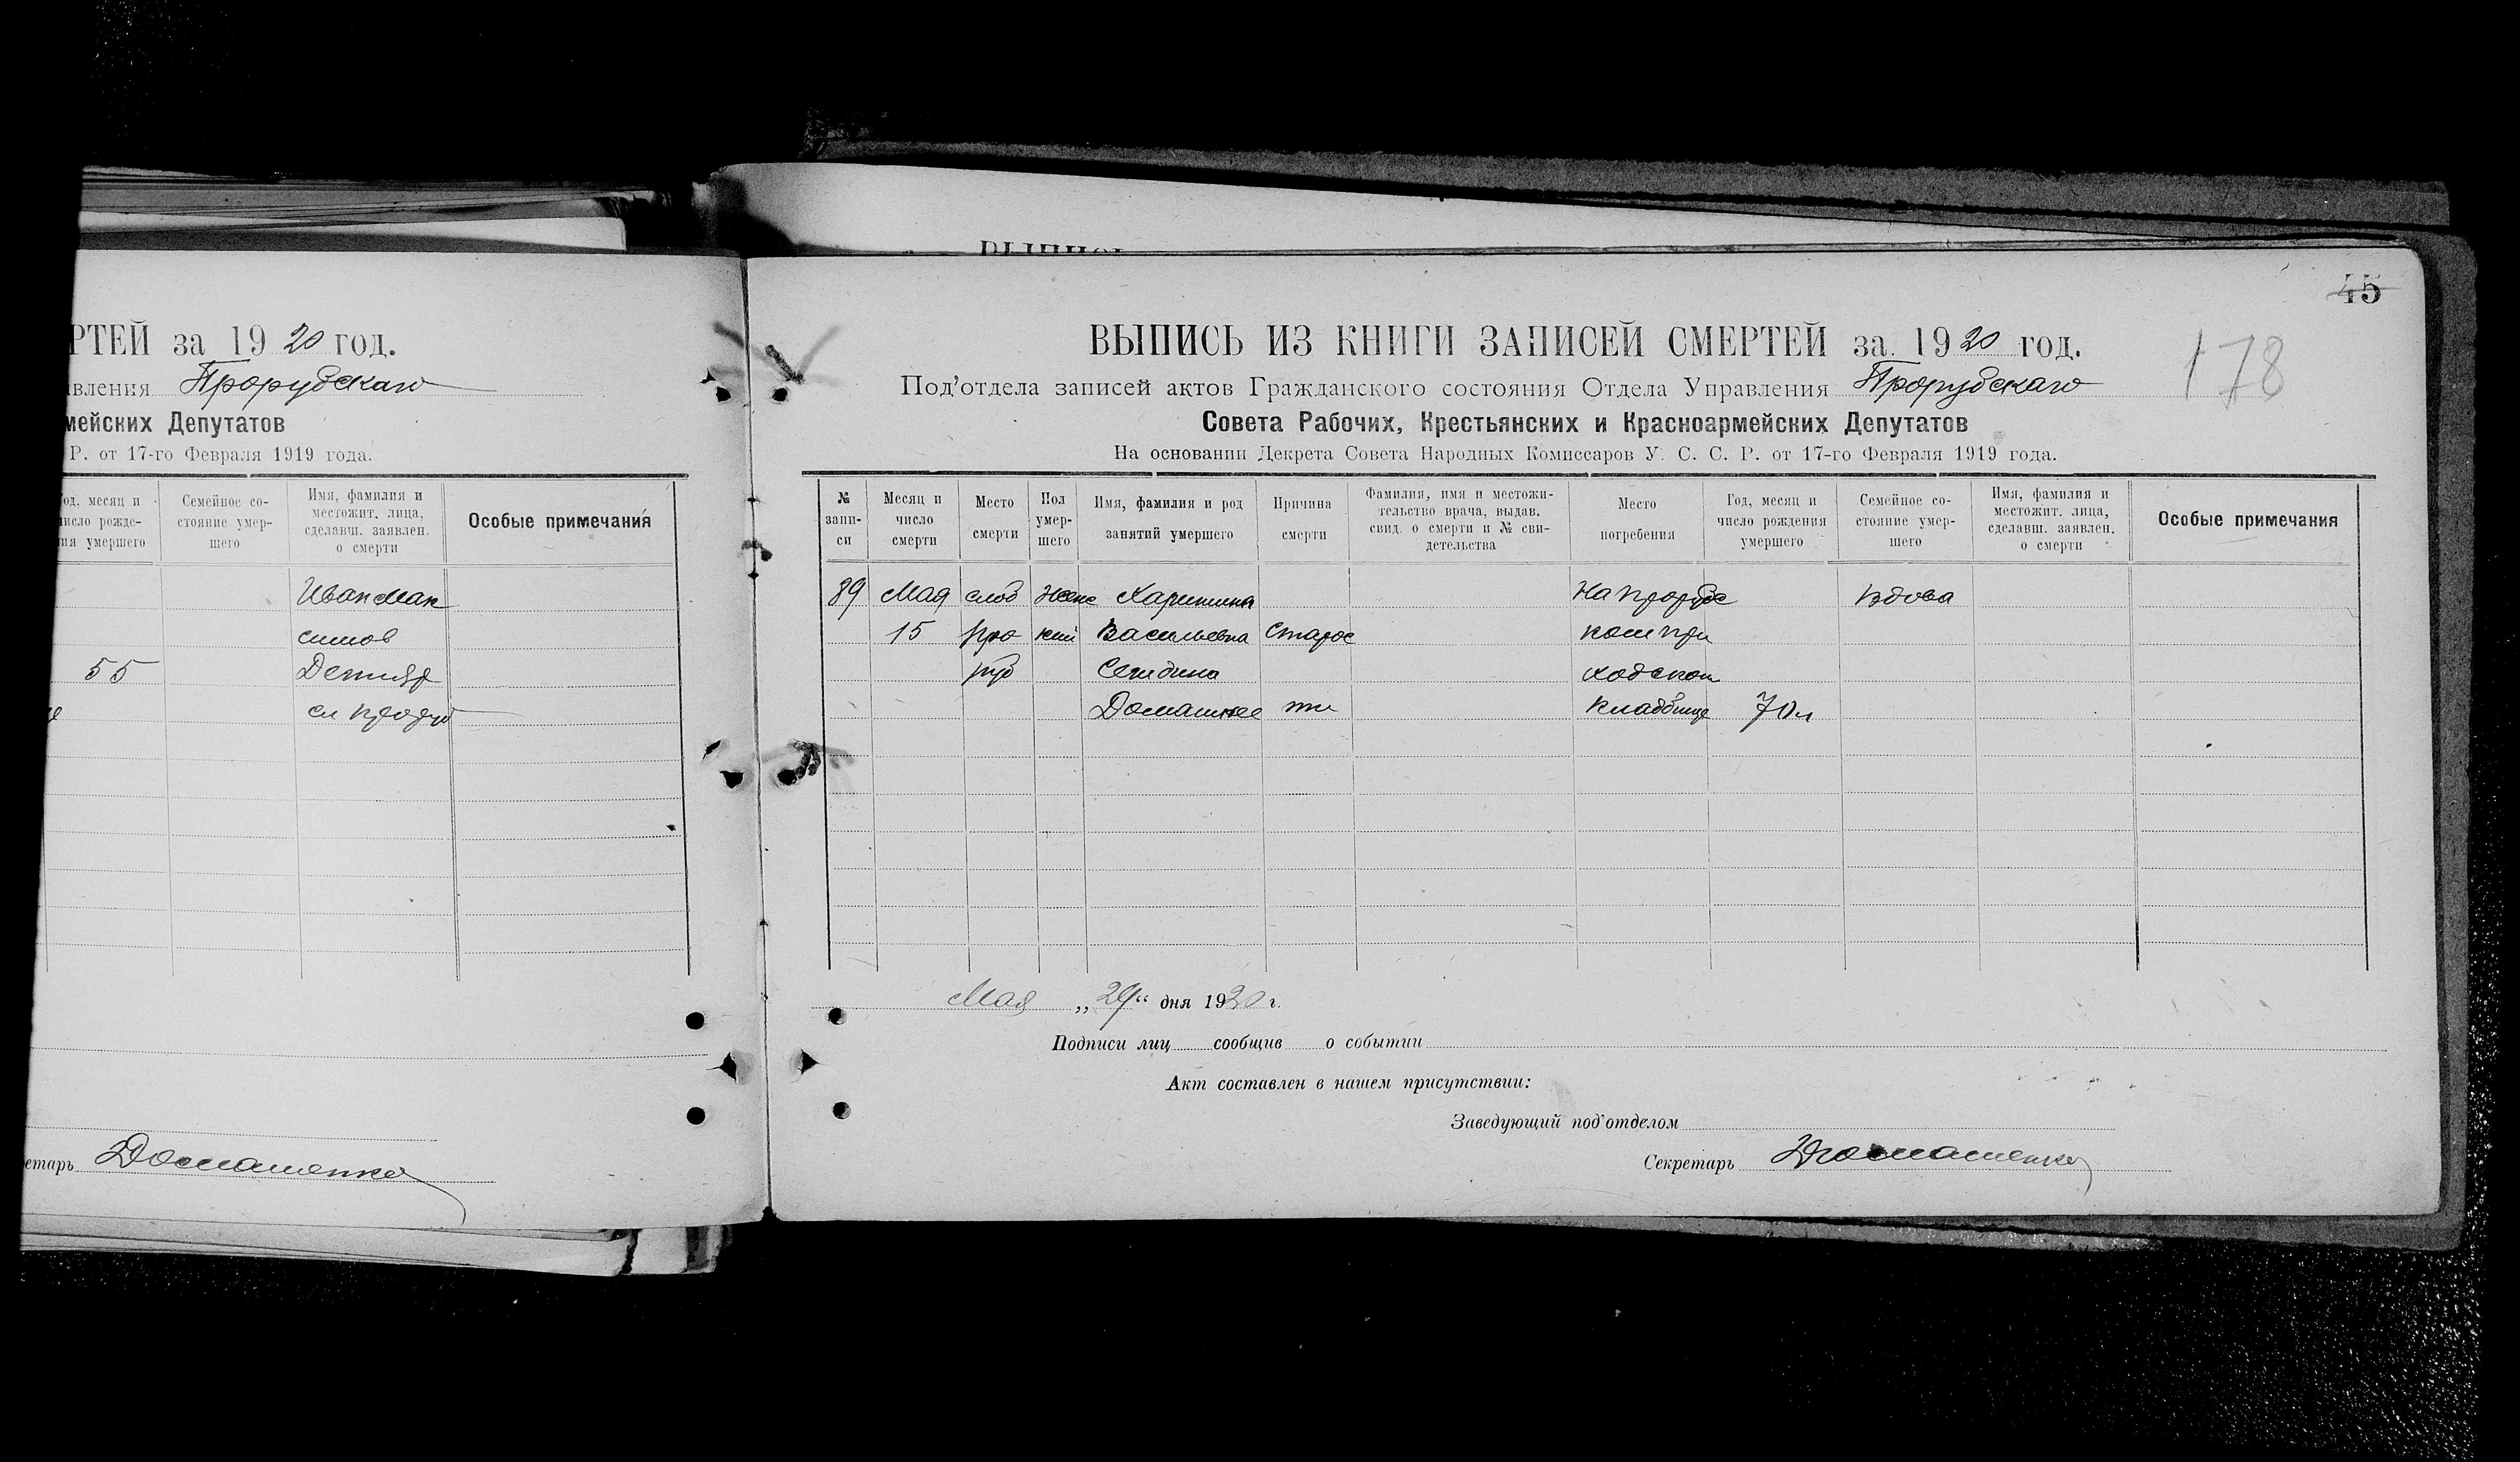 РТЕЙ за 1920 год.
авления Прорубскаго
мейских Депутатов
Р. от 17-го Февраля 1919 года.
од, месяц и число рожде- ия умершего
Семейное со- стояние умер- шего
Имя, фамилия и местожит. лица, сделавш. заявлен. о смерти
Особые примечания
Иван Мак
симов
55 Дегтяр
сл прору
етарь Домашенко
ВЫПИСЬ
45
178
ВЫПИСЬ ИЗ КНИГИ ЗАПИСЕЙ СМЕРТЕЙ за 1920 год.
Под'отдела записей актов Гражданского состояния Отдела Управления Прорубскаго
Совета Рабочих, Крестьянских и Красноармейских Депутатов
На основании Декрета Совета Народных Комиссаров У. С. С. Р. от 17-го Февраля 1919 года.
№ запи- си
Месяц и число смерти
Место смерти
Пол умер- шего
Имя, фамилия и род занятий умершего
Причина смерти
Фамилия, имя и местожи- тельство врача, выдав. свид. о смерти и № сви- детельства
Место погребения
Год, месяц и число рождения умершего
Семейное со- стояние умер- шего
Имя, фамилия и местожит. лица, сделавш. заявлен. о смерти
Особые примечания
89 Мая слоб Женс Харитина На прорубс Вдова
15 про кий Васильевна Старос ком при
руб ходском
Домашнее ти кладбище 70 л
Мая „29" дня 1920 г.
Подписи лиц сообщив о событии
Акт составлен в нашем присутствии:
Заведующий под'отделом
Секретарь Домашенко